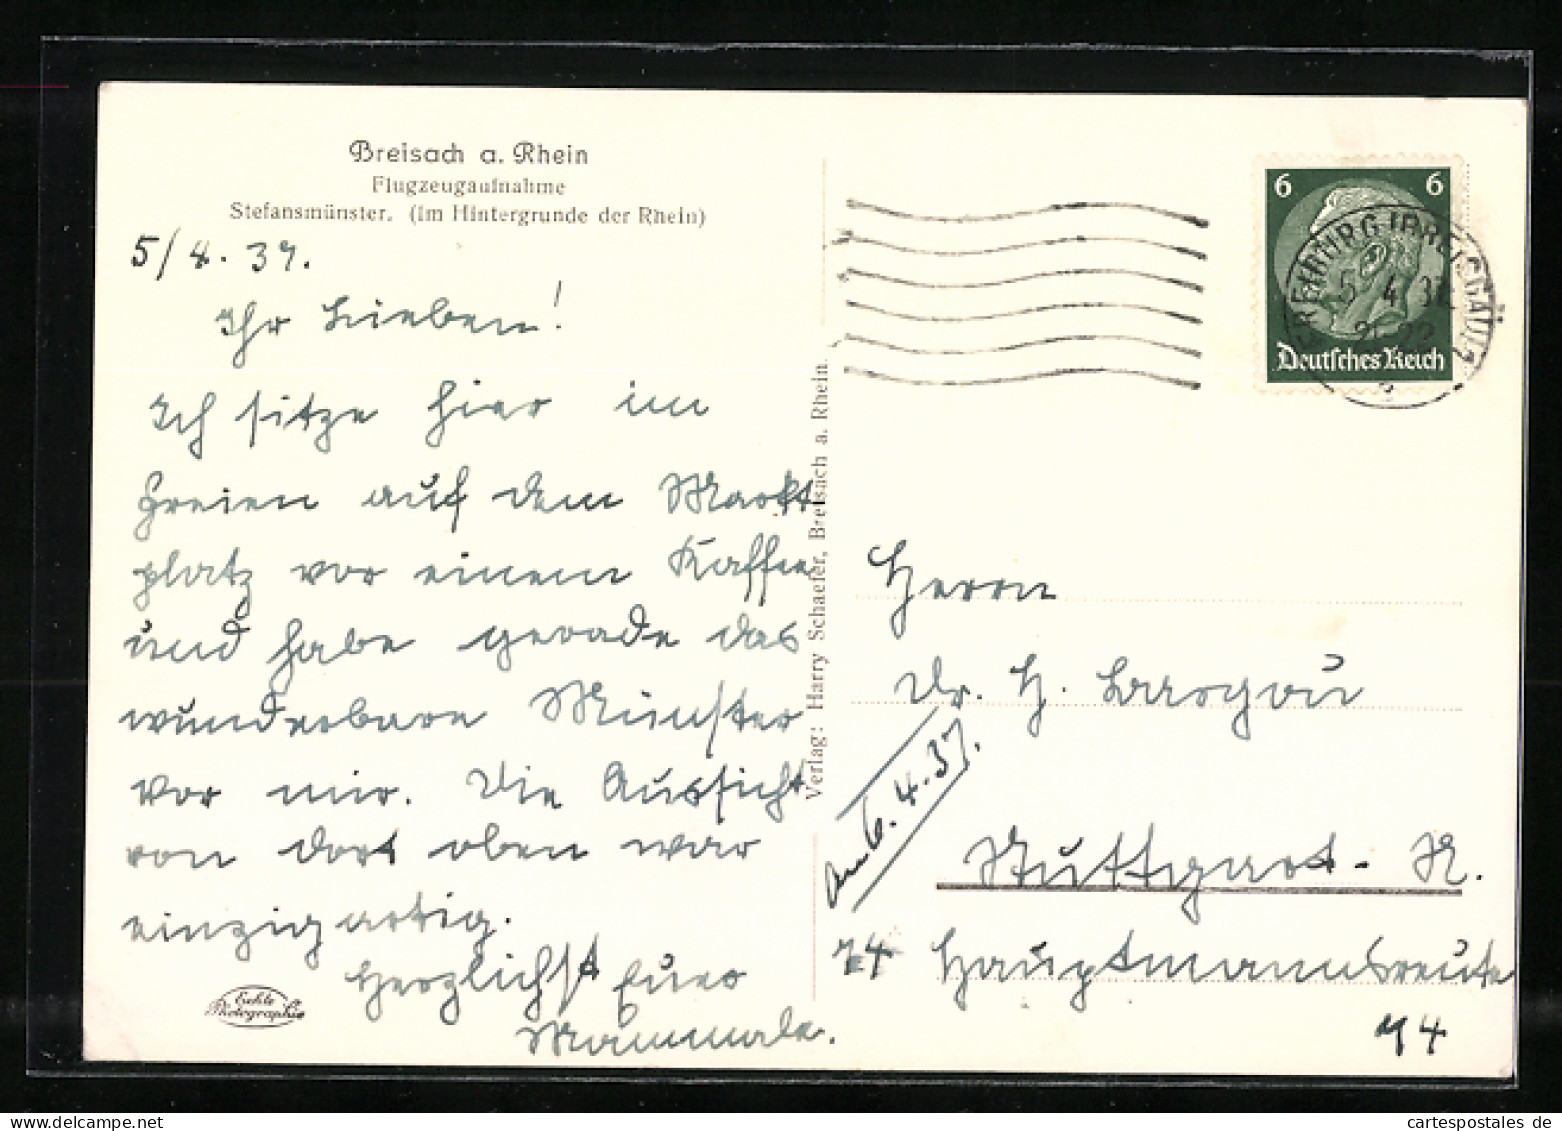 Breisach a. Rhein
Flugzeugaufnahme
Stefansmünster. (Im Hintergrunde der Rhein)
5/4.37.
Ihr Lieben!
Ich sitze hier im
Freien auf dem Markt
platz vor einem Kaffee
und habe gerade das
wunderbare Münster
vor mir. Die Aussicht
von dort oben war
einzigartig.
Herzlichst Eure
Mammale.
Echte
Photographie
Verlag: Harry Schaefer, Breisach a. Rhein.
6 6
Deutsches Reich
FREIBURG (BREISGAU)
5.4.37
21-22
Herrn
Dr. H.
am 6.4.37.
Stuttgart-N.
Hauptmannsreute
74
cartespostales de